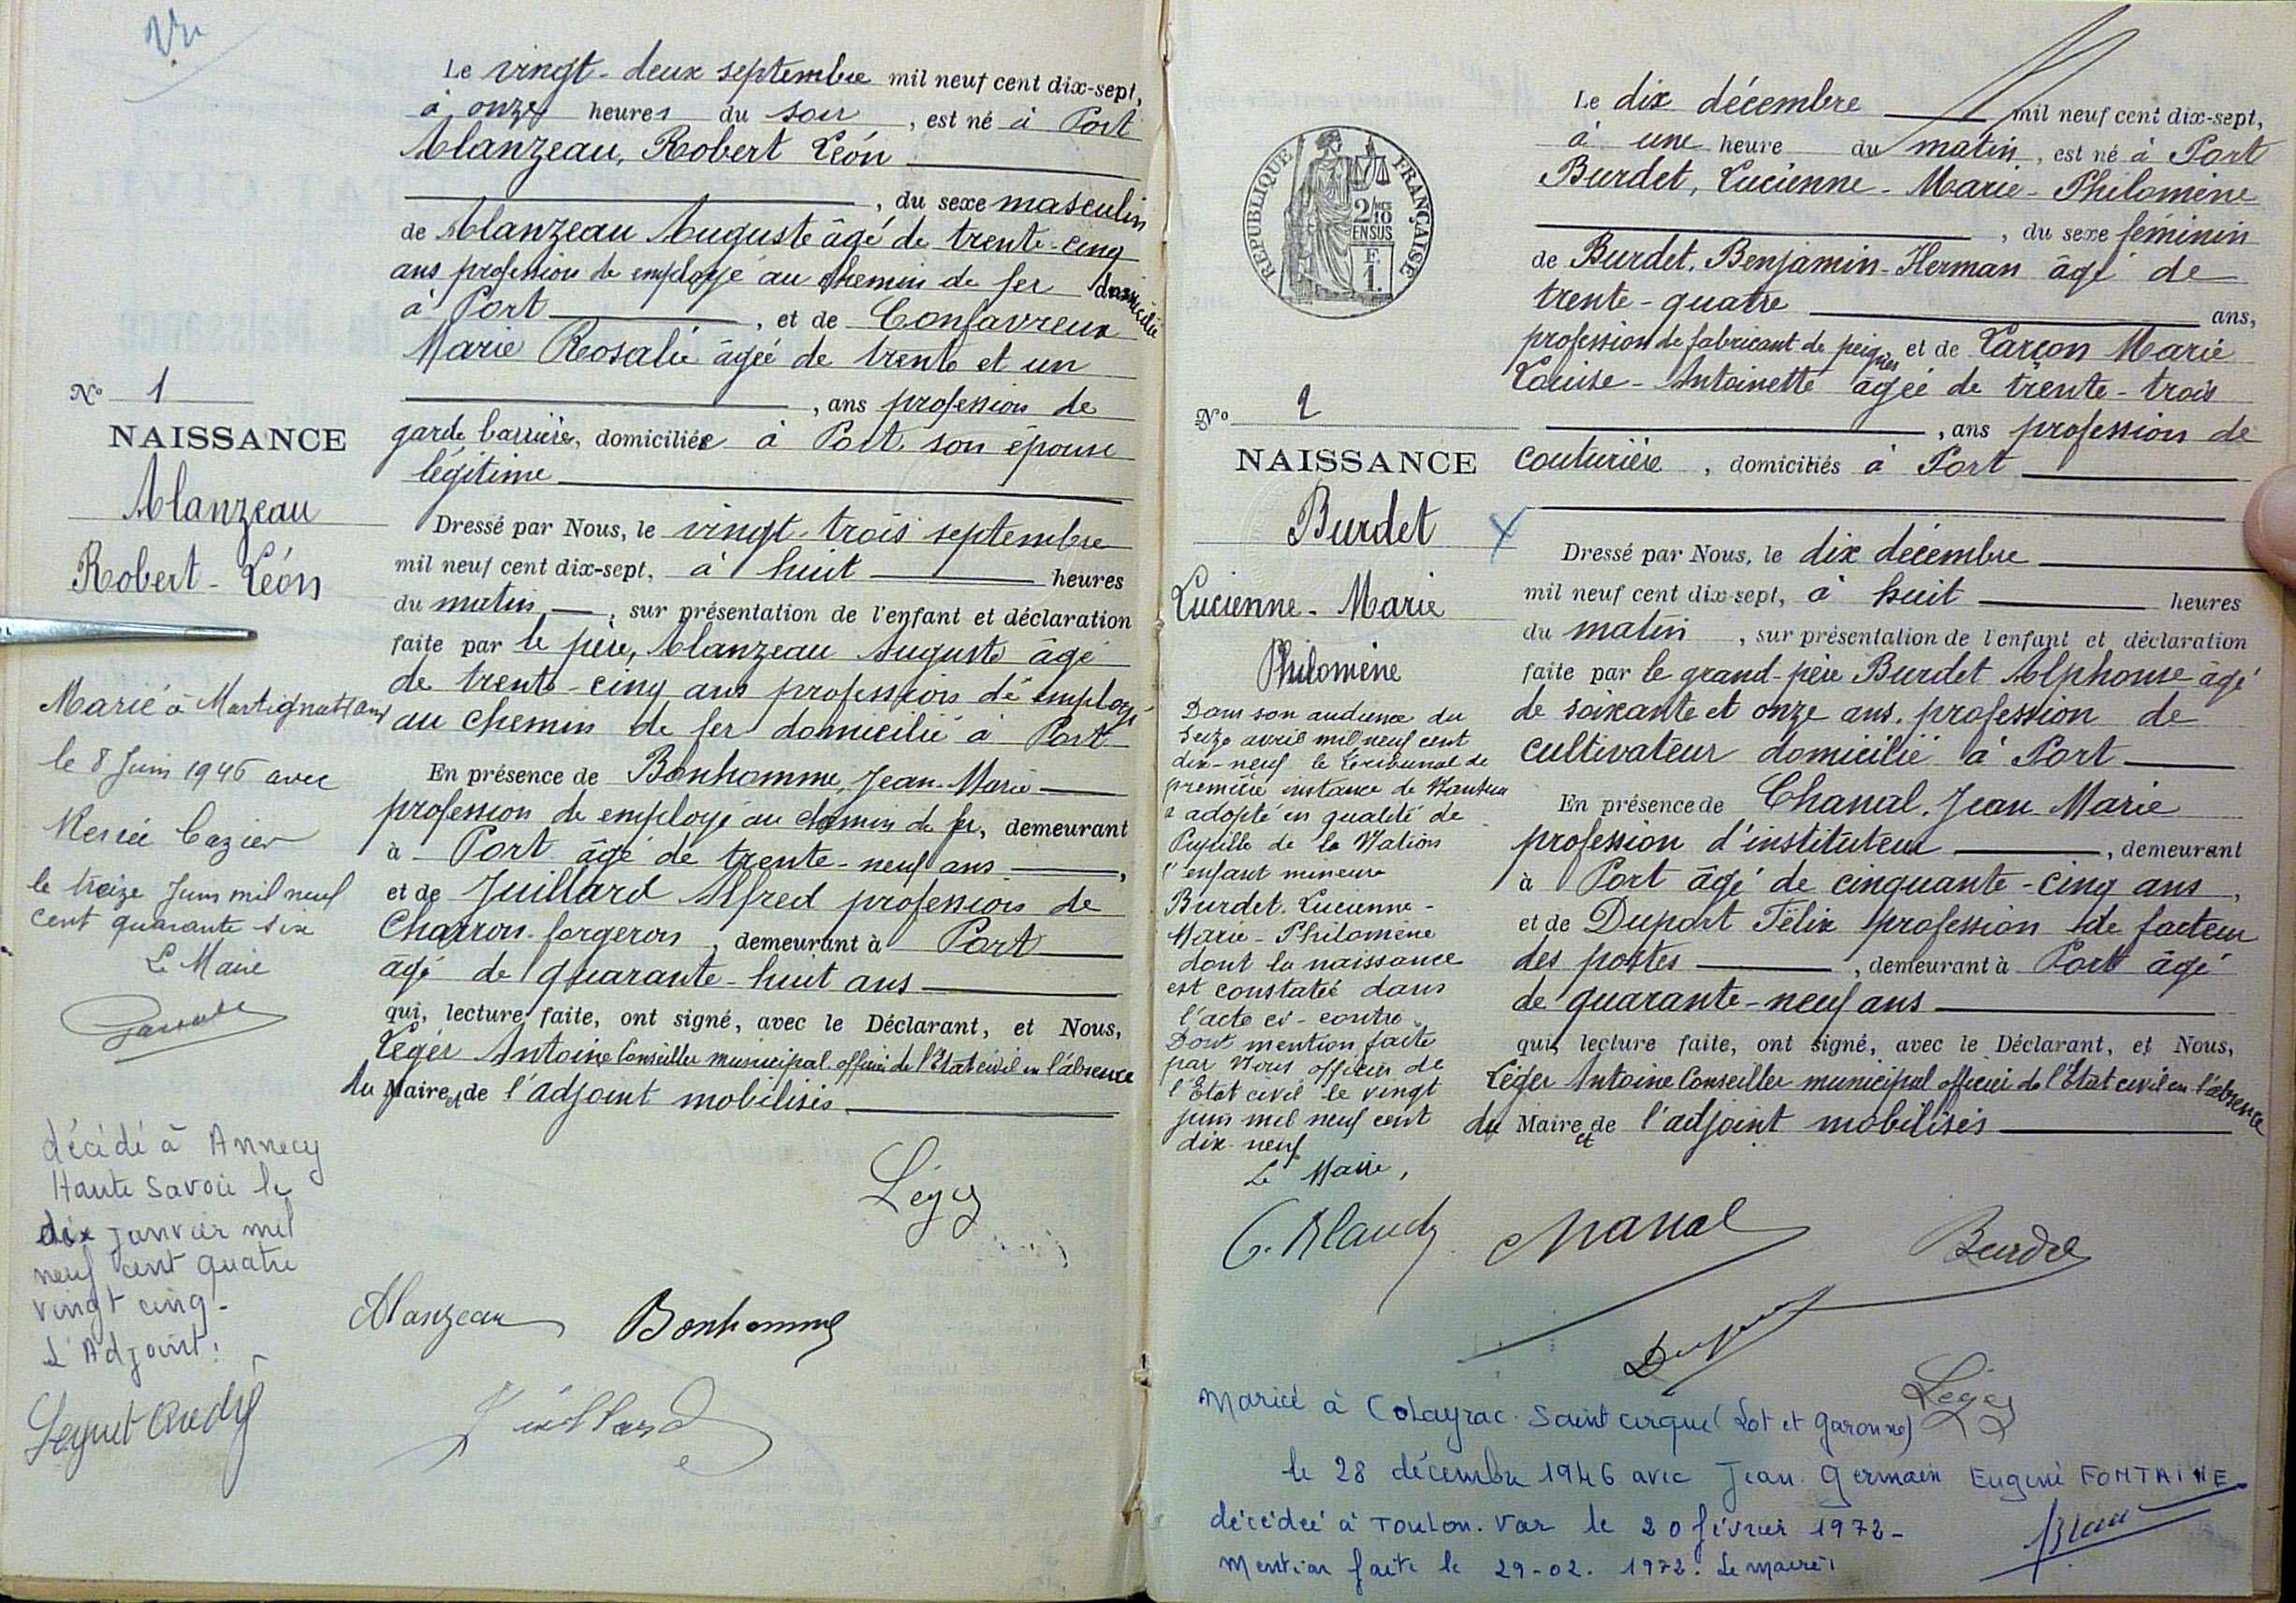 Vu
Le vingt-deux septembre mil neuf cent dix-sept,
à onze heures du soir, est né à Port
Alanzeau, Robert Léon
, du sexe masculin
de Alanzeau Auguste âgé de trente-cinq
ans profession de employé au chemin de fer domicilié
à Port, et de Confavreux
Marie Rosalie âgée de trente et un
, ans profession de
garde barrière, domiciliée à Port son épouse
légitime
No 1
NAISSANCE
Alanzeau
Robert-Léon
Dressé par Nous, le vingt-trois septembre
mil neuf cent dix-sept, à huit heures
du matin, sur présentation de l'enfant et déclaration
faite par le père, Alanzeau Auguste âgé
de trente-cinq ans profession de employé
au chemin de fer domicilié à Port
En présence de Bonhomme, Jean-Marie
profession de employé au chemin de fer, demeurant
à Port âgé de trente-neuf ans,
et de Juillard Alfred profession de
Charron-forgeron, demeurant à Port
âgé de quarante-huit ans
qui, lecture faite, ont signé, avec le Déclarant, et Nous,
Léger Antoine Conseiller municipal officier de l'Etat civil en l'absence
du Maire et de l'adjoint mobilisés.
Marié à Martignat (Ain)
le 8 Juin 1946 avec
Renée Cazier
le treize Juin mil neuf
cent quarante six
Le Maire
décédé à Annecy
Haute Savoie le
dix janvier mil
neuf cent quatre
vingt cinq-
L'Adjoint:
Léger
Alanzeau Bonhomme
Juillard
Le dix décembre mil neuf cent dix-sept,
à une heure du matin, est né à Port
Burdet, Lucienne-Marie-Philomène
, du sexe féminin
de Burdet, Benjamin-Herman âgé de
trente-quatre ans,
profession de fabricant de peignes et de Larçon Marie
Louise-Antoinette âgée de trente-trois
, ans profession de
couturière, domiciliés à Port
REPUBLIQUE FRANÇAISE
2/10 EN SUS
F. 1.
No 2
NAISSANCE
Burdet
Lucienne-Marie
Philomène
Dressé par Nous, le dix décembre
mil neuf cent dix-sept, à huit heures
du matin, sur présentation de l'enfant et déclaration
faite par le grand-père Burdet Alphonse âgé
de soixante et onze ans. profession de
cultivateur domicilié à Port
En présence de Chanal, Jean-Marie
profession d'instituteur, demeurant
à Port âgé de cinquante-cinq ans,
et de Duport Félix profession de facteur
des postes, demeurant à Port âgé
de quarante-neuf ans
qui, lecture faite, ont signé, avec le Déclarant, et Nous,
Léger Antoine Conseiller municipal officier de l'Etat civil en l'absence
du Maire et de l'adjoint mobilisés
Dans son audience du
seize avril mil neuf cent
dix-neuf le tribunal de
première instance de Nantua
a adopté en qualité de
Pupille de la Nation
l'enfant mineure
Burdet. Lucienne-
Marie-Philomène
dont la naissance
est constatée dans
l'acte ci-contre.
Dont mention faite
par Nous officier de
l'Etat civil le vingt
juin mil neuf cent
dix-neuf
Le Maire,
Chanal Burdet
Duport
Léger
Mariée à Colayrac-Saint cirque (Lot et Garonne)
le 28 décembre 1946 avec Jean Germain Eugène FONTAINE
décédée à Toulon. Var le 20 février 1972-
Mention faite le 29-02.1972. Le maire: